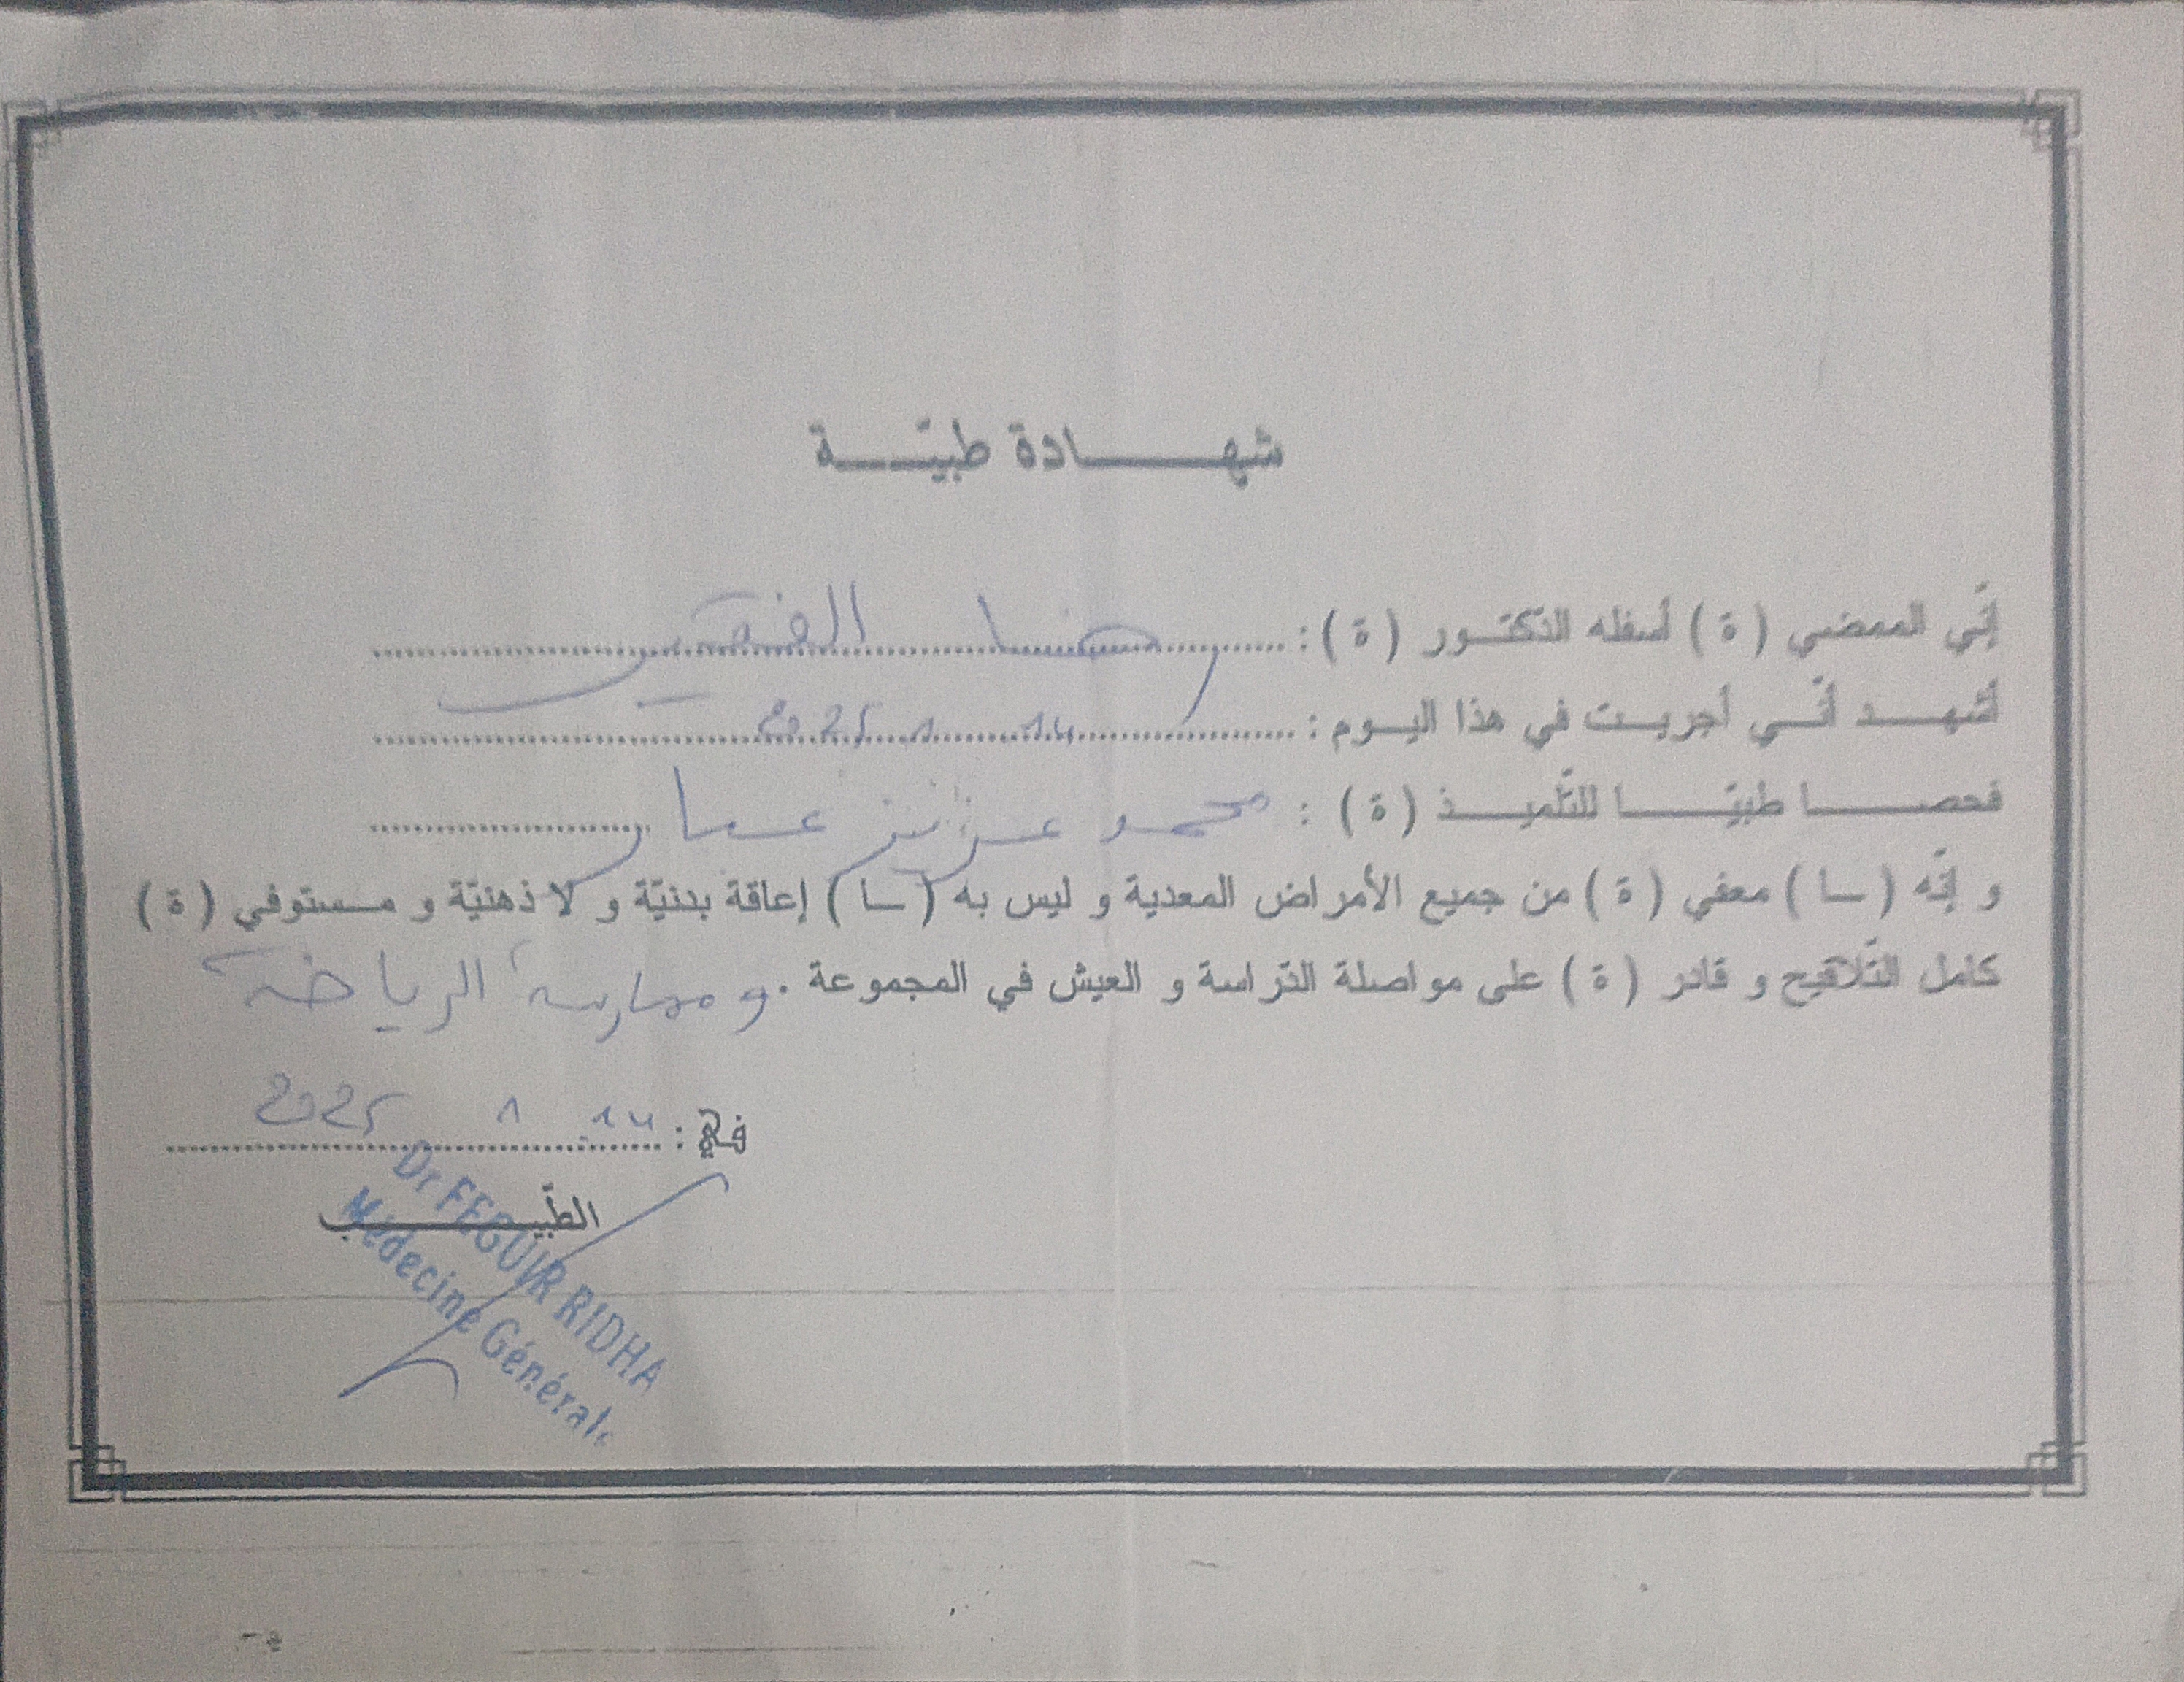 شهادة طبيّة
إنّي الممضي (ة) أسفله الدّكتور (ة) : رضا الفقير
أشهد أنّي أجريت في هذا اليوم : 14 1 2025
فحصا طبيّا للتّلميذ (ة) : محمد عزيز عمار
و إنّه (ـا) معفي (ة) من جميع الأمراض المعدية و ليس به (ـا) إعاقة بدنيّة و لا ذهنيّة و مستوفي (ة)
كامل التّلاقيح و قادر (ة) على مواصلة الدّراسة و العيش في المجموعة . و ممارسة الرياضة
في : 14 1 2025
الطّبيب
Dr FEGUIR RIDHA
Médecine Générale